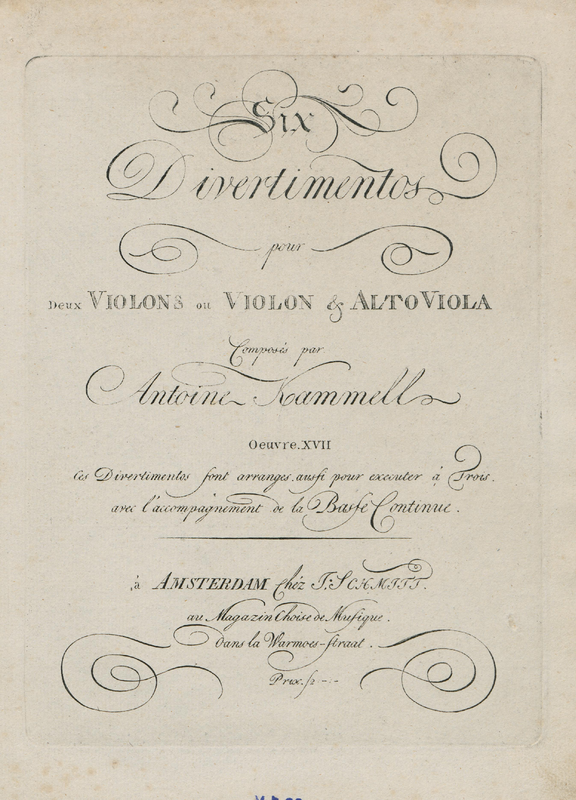 Six
Divertimentos
pour
Deux VIOLONS ou VIOLON & ALTO VIOLA
Composés par
Antoine Kammell
Oeuvre.XVII
Ces Divertimentos sont arranges aussi pour executer à Trois.
avec l'accompagnement de la Basse Continue.
à AMSTERDAM Chéz J: SCHMITT.
au Magazin Choise de Musique.
Dans la Warmoes-straat.
Prix. f2 -:-